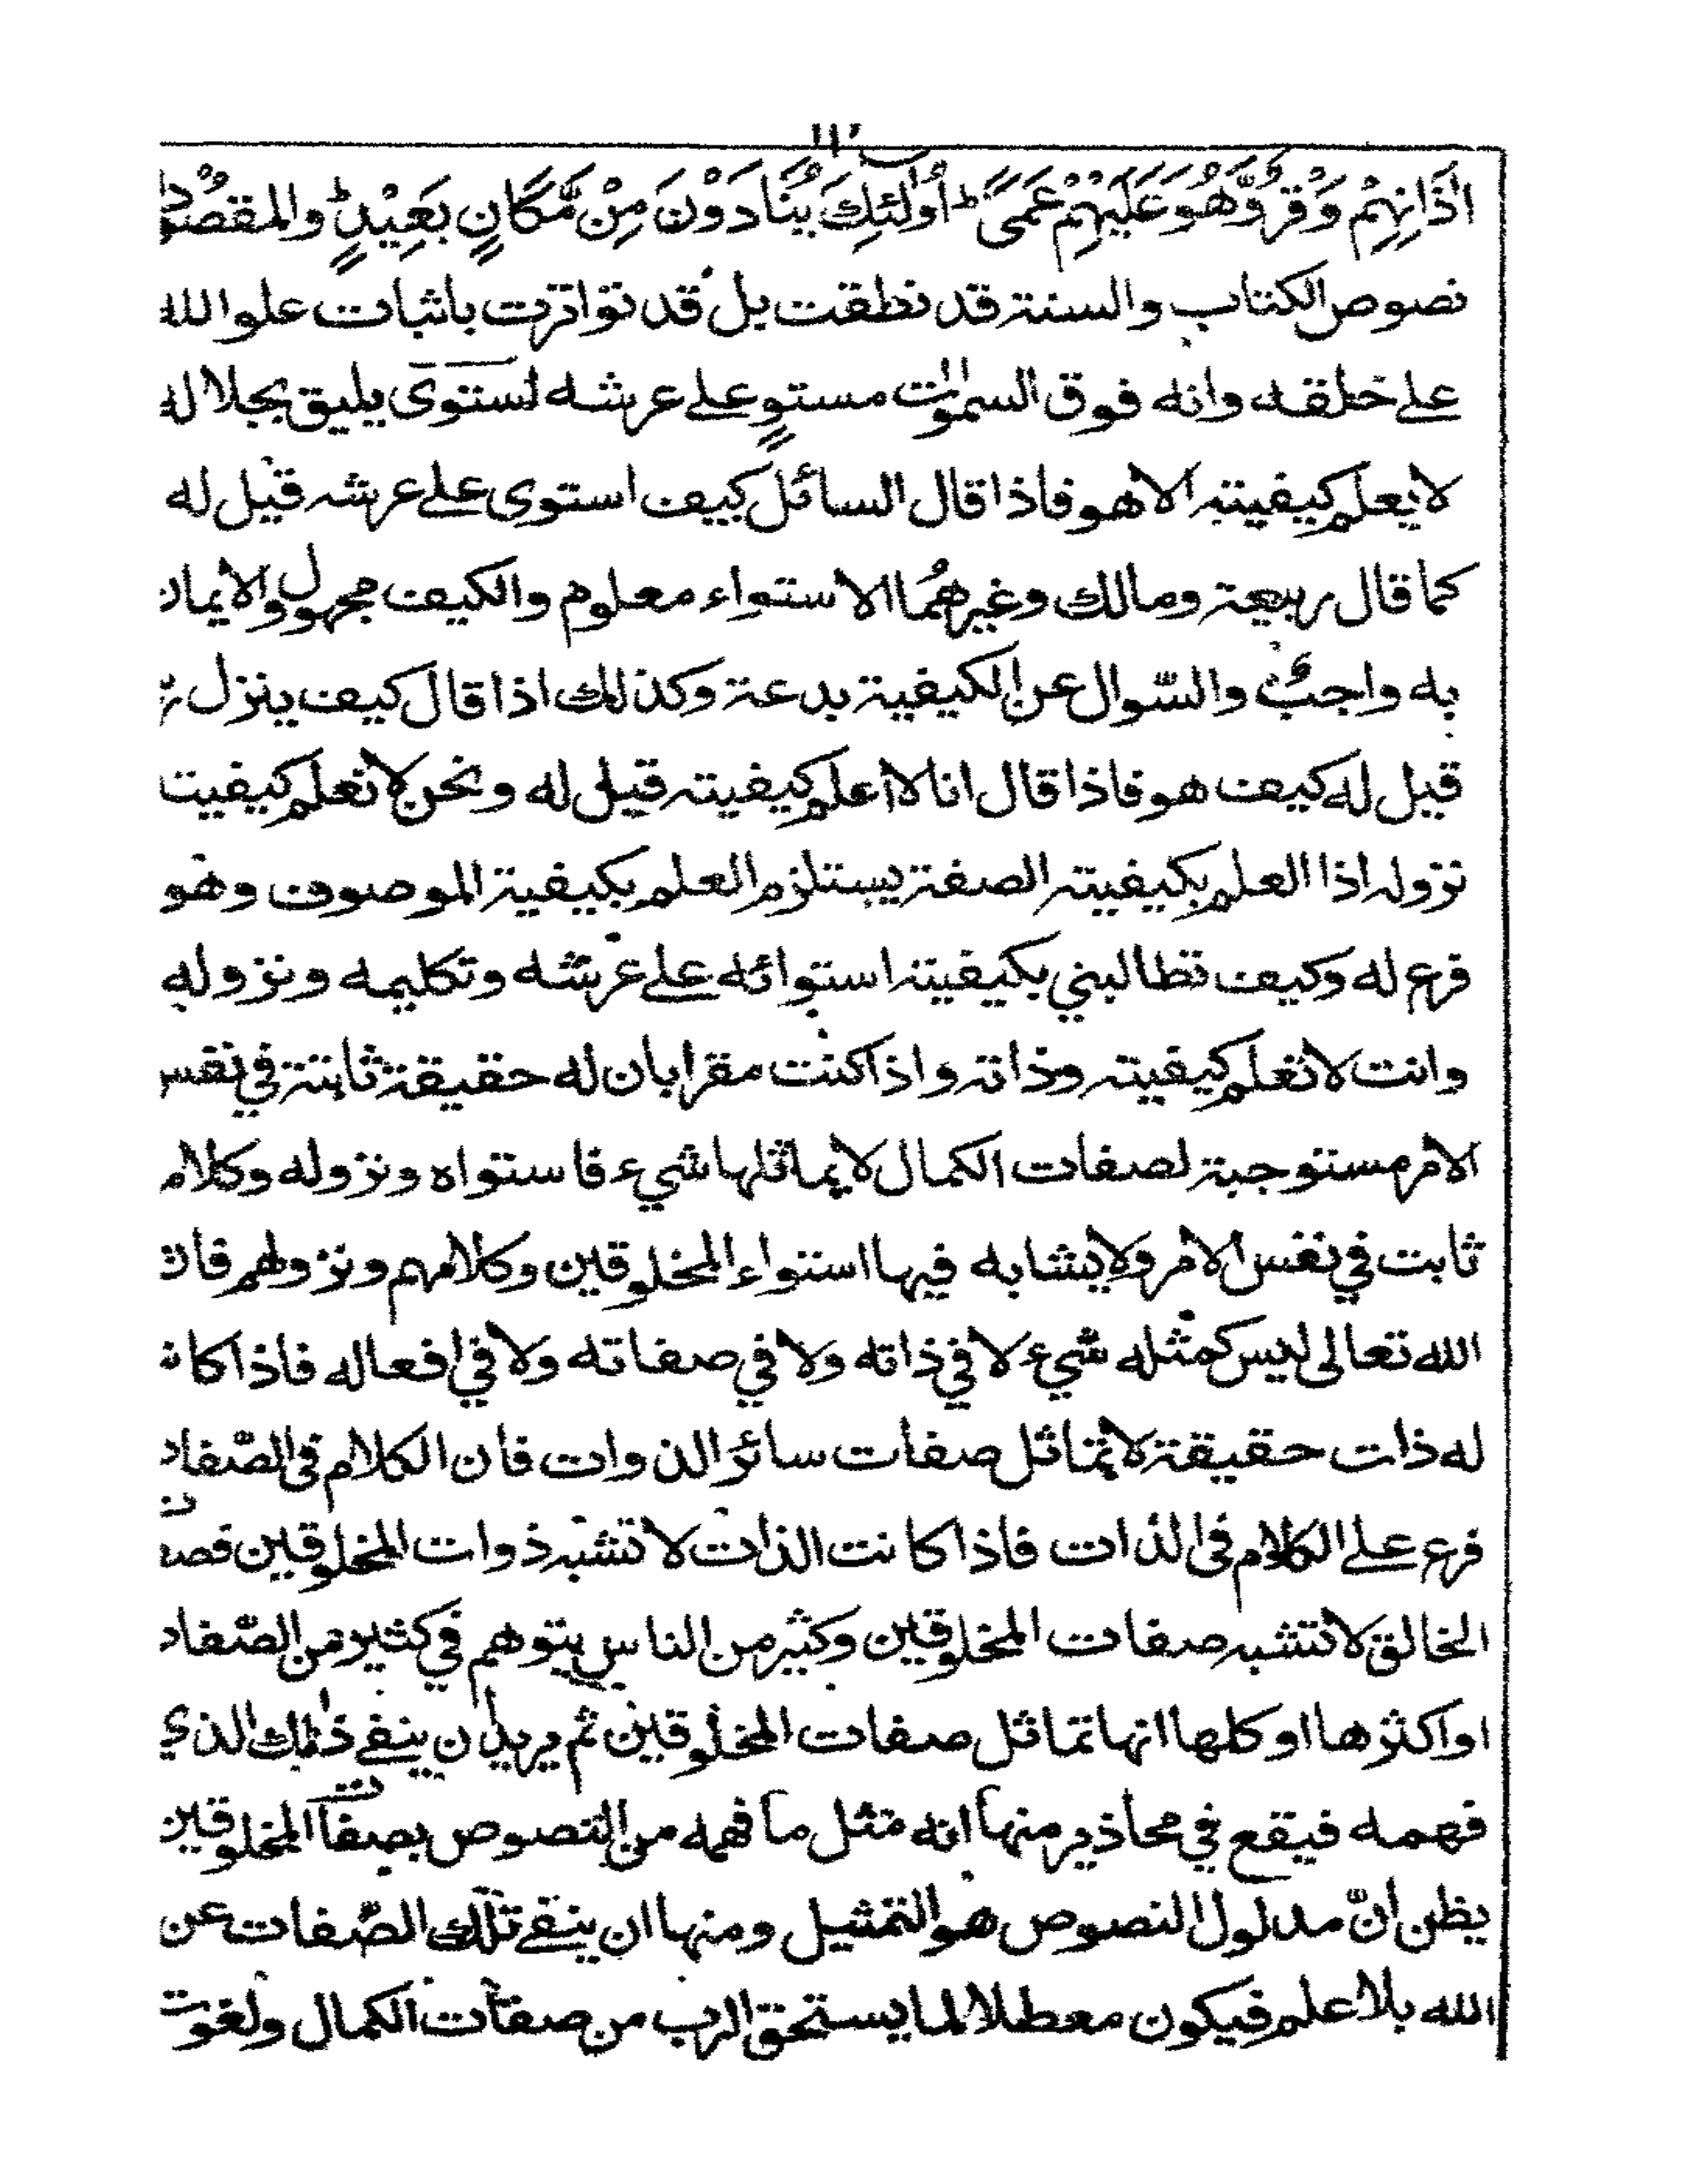 اٰذَانِهِمْ وَقْرٌ وَّهُوَ عَلَيْهِمْ عَمًى ط اُولٰئِكَ يُنَادَوْنَ مِنْ مَّكَانٍ بَعِيْدٍ ط والمقصُود
نصوص الكتاب والسنة قد نطقت بل قد تواترت باثبات علو الله
علے خلقه وانه فوق السمٰوٰت مستوٍ علے عرشه يليق بجلاله
لا يعلم كيفيته الا هو فاذا قال السائل كيف استوى علے عرشه قيل له
كما قال ربيعة ومالك وغيرهُما الاستواء معلوم والكيف مجهول والايمان
به واجبٌ والسّوال عن الكيفية بدعة وكذلك اذا قال كيف ينزل
قيل له كيف هو فاذا قال انا لا اعلم كيفيته قيل له ونحن لا نعلم كيفيت
نزوله اذا العلم بكيفيته الصفة يستلزم العلم بكيفية الموصوف وهو
فرع له وكيف تطالبني بكيفيته استوائه علے عرشه وتكليمه ونزوله
وانت لا تعلم كيفيته وذاته واذا كنت مقرا بان له حقيقة ثابتة في نفس
الامر مستوجبة لصفات الكمال لا يماثلها شيء فاستواه ونزوله وكلام
ثابت في نفس الامر ولا يشابه فيها استواء المخلوقين وكلامهم ونزولهم فان
الله تعالى ليس كمثله شيء لا في ذاته ولا في صفاته ولا في افعاله فاذا كان
له ذات حقيقة لا تماثل صفات سائر الذوات فان الكلام فى الصّفات
فرع علے الكلام فى الذات فاذا كانت الذات لا تشبه ذوات المخلوقين فصفات
الخالق لا تشبه صفات المخلوقين وكثير من الناس يتوهم في كثير من الصّفات
او اكثرها او كلها انها تماثل صفات المخلوقين ثم يريد ان ينفے ذٰلك الذي
فهمه فيقع في محاذير منها انه مثل ما فهمه من النصوص بصفات المخلوقين
يظن انّ مدلول النصوص هو التمثيل ومنها ان ينفے تلك الصّفات عن
الله بلا علم فيكون معطلا لما يستحق الرب من صفات الكمال ولغوت